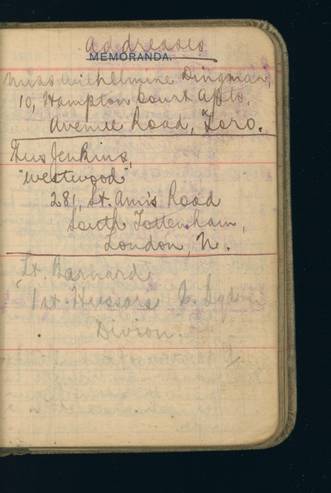 addresses
MEMORANDA.
Miss Wilhelmine Dingman,
10, Hampton Court Apts.
Avenue Road, Toro.
Gus Jenkins,
"Westwood"
281, St. Ann's Road
South Tottenham,
London, N.
Lt. Barnard
1st Hussars
Division.